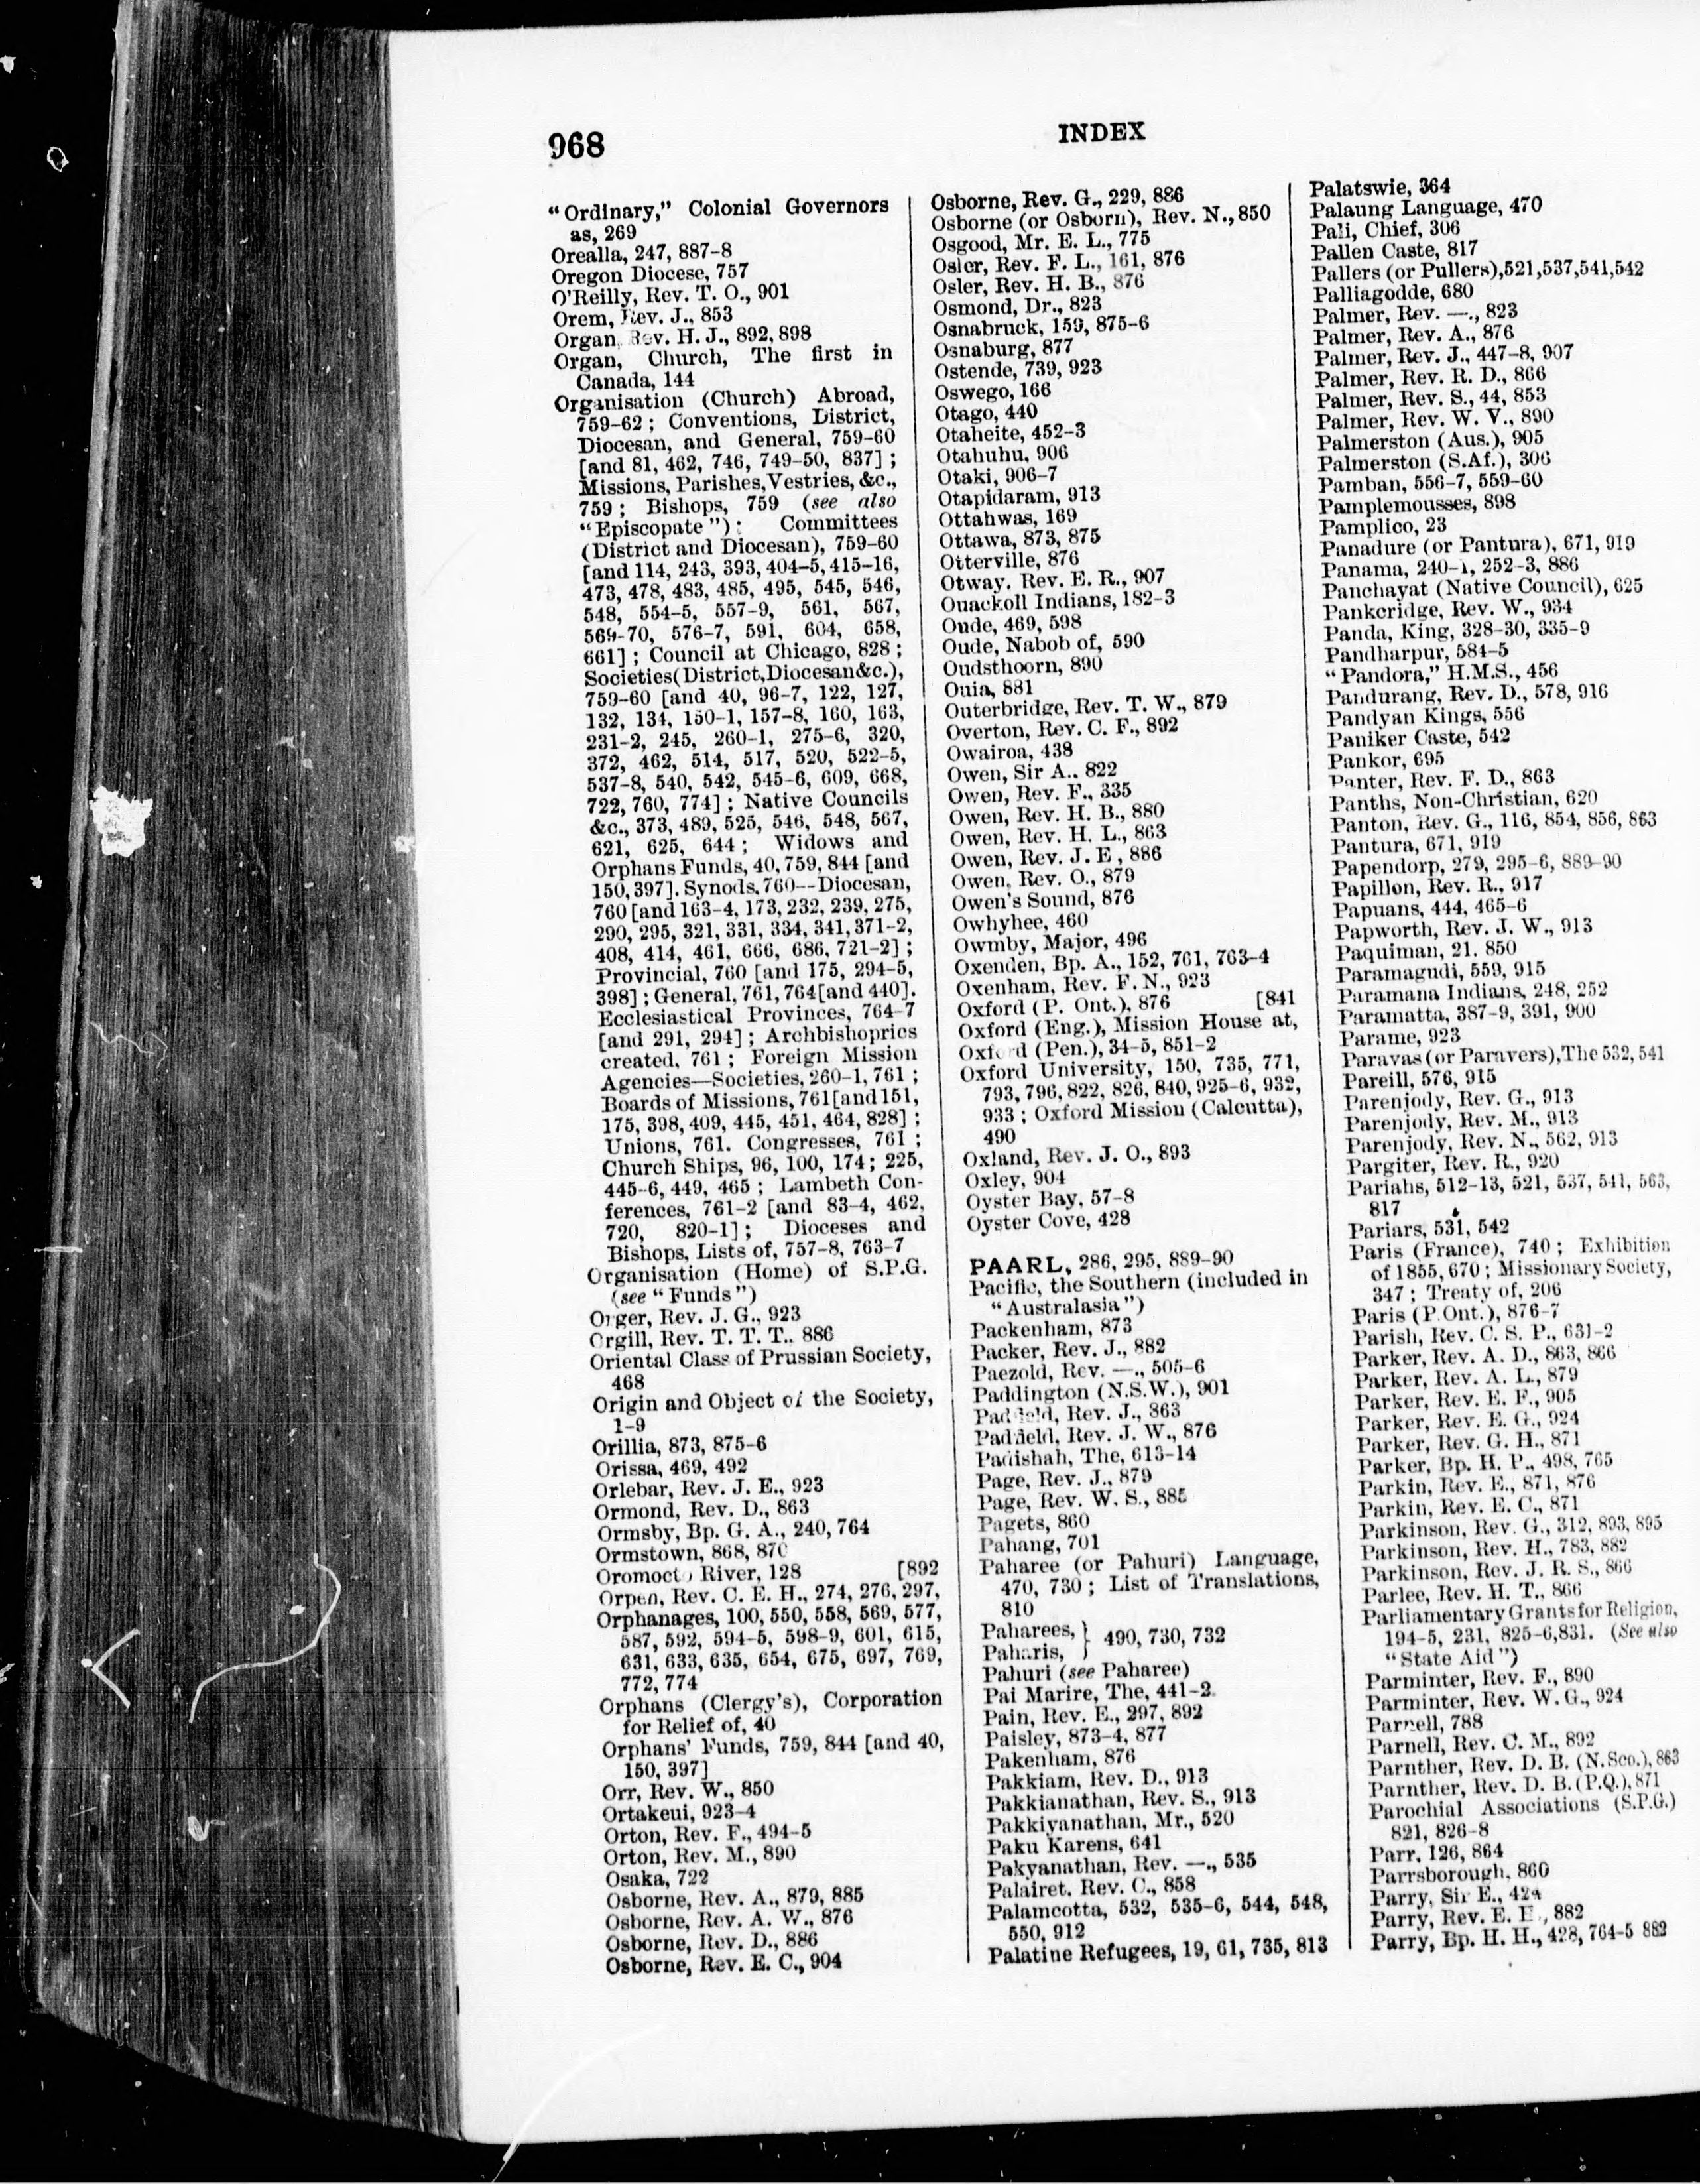 968
INDEX
“Ordinary,” Colonial Governors
as, 269
Orealla, 247, 887-8
Oregon Diocese, 757
O’Reilly, Rev. T. O., 901
Orem, Rev. J., 853
Organ, Rev. H. J., 892, 898
Organ, Church, The first in
Canada, 144
Organisation (Church) Abroad,
759-62; Conventions, District,
Diocesan, and General, 759-60
[and 81, 462, 746, 749-50, 837];
Missions, Parishes, Vestries, &c.,
759; Bishops, 759 (see also
“Episcopate”): Committees
(District and Diocesan), 759-60
[and 114, 243, 393, 404-5, 415-16,
473, 478, 483, 485, 495, 545, 546,
548, 554-5, 557-9, 561, 567,
569-70, 576-7, 591, 604, 658,
661]; Council at Chicago, 828;
Societies (District, Diocesan &c.),
759-60 [and 40, 96-7, 122, 127,
132, 134, 150-1, 157-8, 160, 163,
231-2, 245, 260-1, 275-6, 320,
372, 462, 514, 517, 520, 522-5,
537-8, 540, 542, 545-6, 609, 668,
722, 760, 774]; Native Councils
&c., 373, 489, 525, 546, 548, 567,
621, 625, 644; Widows and
Orphans Funds, 40, 759, 844 [and
150, 397]. Synods, 760--Diocesan,
760 [and 163-4, 173, 232, 239, 275,
290, 295, 321, 331, 334, 341, 371-2,
408, 414, 461, 666, 686, 721-2];
Provincial, 760 [and 175, 294-5,
398]; General, 761, 764 [and 440].
Ecclesiastical Provinces, 764-7
[and 291, 294]; Archbishoprics
created, 761; Foreign Mission
Agencies—Societies, 260-1, 761;
Boards of Missions, 761 [and 151,
175, 398, 409, 445, 451, 464, 828];
Unions, 761. Congresses, 761;
Church Ships, 96, 100, 174; 225,
445-6, 449, 465; Lambeth Con-
ferences, 761-2 [and 83-4, 462,
720, 820-1]; Dioceses and
Bishops, Lists of, 757-8, 763-7
Organisation (Home) of S.P.G.
(see “Funds”)
Orger, Rev. J. G., 923
Orgill, Rev. T. T. T., 886
Oriental Class of Prussian Society,
468
Origin and Object of the Society,
1-9
Orillia, 873, 875-6
Orissa, 469, 492
Orlebar, Rev. J. E., 923
Ormond, Rev. D., 863
Ormsby, Bp. G. A., 240, 764
Ormstown, 868, 870
Oromocto River, 128 [892
Orpen, Rev. C. E. H., 274, 276, 297,
Orphanages, 100, 550, 558, 569, 577,
587, 592, 594-5, 598-9, 601, 615,
631, 633, 635, 654, 675, 697, 769,
772, 774
Orphans (Clergy’s), Corporation
for Relief of, 40
Orphans’ Funds, 759, 844 [and 40,
150, 397]
Orr, Rev. W., 850
Ortakeui, 923-4
Orton, Rev. F., 494-5
Orton, Rev. M., 890
Osaka, 722
Osborne, Rev. A., 879, 885
Osborne, Rev. A. W., 876
Osborne, Rev. D., 886
Osborne, Rev. E. C., 904
Osborne, Rev. G., 229, 886
Osborne (or Osborn), Rev. N., 850
Osgood, Mr. E. L., 775
Osler, Rev. F. L., 161, 876
Osler, Rev. H. B., 876
Osmond, Dr., 823
Osnabruck, 159, 875-6
Osnaburg, 877
Ostende, 739, 923
Oswego, 166
Otago, 440
Otaheite, 452-3
Otahuhu, 906
Otaki, 906-7
Otapidaram, 913
Ottahwas, 169
Ottawa, 873, 875
Otterville, 876
Otway, Rev. E. R., 907
Ouackoll Indians, 182-3
Oude, 469, 598
Oude, Nabob of, 590
Oudsthoorn, 890
Ouia, 881
Outerbridge, Rev. T. W., 879
Overton, Rev. C. F., 892
Owairoa, 438
Owen, Sir A., 822
Owen, Rev. F., 335
Owen, Rev. H. B., 880
Owen, Rev. H. L., 863
Owen, Rev. J. E, 886
Owen, Rev. O., 879
Owen’s Sound, 876
Owhyhee, 460
Owmby, Major, 496
Oxenden, Bp. A., 152, 761, 763-4
Oxenham, Rev. F. N., 923
Oxford (P. Ont.), 876 [841
Oxford (Eng.), Mission House at,
Oxford (Pen.), 34-5, 851-2
Oxford University, 150, 735, 771,
793, 796, 822, 826, 840, 925-6, 932,
933; Oxford Mission (Calcutta),
490
Oxland, Rev. J. O., 893
Oxley, 904
Oyster Bay, 57-8
Oyster Cove, 428
PAARL, 286, 295, 889-90
Pacific, the Southern (included in
“Australasia”)
Packenham, 873
Packer, Rev. J., 882
Paezold, Rev. —., 505-6
Paddington (N.S.W.), 901
Padfield, Rev. J., 863
Padfield, Rev. J. W., 876
Padishah, The, 613-14
Page, Rev. J., 879
Page, Rev. W. S., 885
Pagets, 860
Pahang, 701
Paharee (or Pahuri) Language,
470, 730; List of Translations,
810
Paharees, } 490, 730, 732
Paharis, }
Pahuri (see Paharee)
Pai Marire, The, 441-2
Pain, Rev. E., 297, 892
Paisley, 873-4, 877
Pakenham, 876
Pakkiam, Rev. D., 913
Pakkianathan, Rev. S., 913
Pakkiyanathan, Mr., 520
Paku Karens, 641
Pakyanathan, Rev. —., 535
Palairet, Rev. C., 858
Palamcotta, 532, 535-6, 544, 548,
550, 912
Palatine Refugees, 19, 61, 735, 813
Palatswie, 364
Palaung Language, 470
Pali, Chief, 306
Pallen Caste, 817
Pallers (or Pullers), 521, 537, 541, 542
Palliagodde, 680
Palmer, Rev. —., 823
Palmer, Rev. A., 876
Palmer, Rev. J., 447-8, 907
Palmer, Rev. R. D., 866
Palmer, Rev. S., 44, 853
Palmer, Rev. W. V., 890
Palmerston (Aus.), 905
Palmerston (S.Af.), 306
Pamban, 556-7, 559-60
Pamplemousses, 898
Pamplico, 23
Panadure (or Pantura), 671, 919
Panama, 240-1, 252-3, 886
Panchayat (Native Council), 625
Pankeridge, Rev. W., 934
Panda, King, 328-30, 335-9
Pandharpur, 584-5
“Pandora,” H.M.S., 456
Pandurang, Rev. D., 578, 916
Pandyan Kings, 556
Paniker Caste, 542
Pankor, 695
Panter, Rev. F. D., 863
Panths, Non-Christian, 620
Panton, Rev. G., 116, 854, 856, 863
Pantura, 671, 919
Papendorp, 279, 295-6, 889-90
Papillon, Rev. R., 917
Papuans, 444, 465-6
Papworth, Rev. J. W., 913
Paquiman, 21. 850
Paramagudi, 559, 915
Paramana Indians, 248, 252
Paramatta, 387-9, 391, 900
Parame, 923
Paravas (or Paravers), The 532, 541
Pareill, 576, 915
Parenjody, Rev. G., 913
Parenjody, Rev. M., 913
Parenjody, Rev. N., 562, 913
Pargiter, Rev. R., 920
Pariahs, 512-13, 521, 537, 541, 563,
817
Pariars, 531, 542
Paris (France), 740; Exhibition
of 1855, 670; Missionary Society,
347; Treaty of, 206
Paris (P.Ont.), 876-7
Parish, Rev. C. S. P., 631-2
Parker, Rev. A. D., 863, 866
Parker, Rev. A. L., 879
Parker, Rev. E. F., 905
Parker, Rev. E. G., 924
Parker, Rev. G. H., 871
Parker, Bp. H. P., 498, 765
Parkin, Rev. E., 871, 876
Parkin, Rev. E. C., 871
Parkinson, Rev. G., 312, 893, 895
Parkinson, Rev. H., 783, 882
Parkinson, Rev. J. R. S., 866
Parlee, Rev. H. T., 866
Parliamentary Grants for Religion,
194-5, 231, 825-6, 831. (See also
“State Aid”)
Parminter, Rev. F., 890
Parminter, Rev. W. G., 924
Parnell, 788
Parnell, Rev. C. M., 892
Parnther, Rev. D. B. (N.Sco.), 863
Parnther, Rev. D. B. (P.Q.), 871
Parochial Associations (S.P.G.)
821, 826-8
Parr, 126, 864
Parrsborough, 860
Parry, Sir E., 424
Parry, Rev. E. , 882
Parry, Bp. H. H., 428, 764-5 882